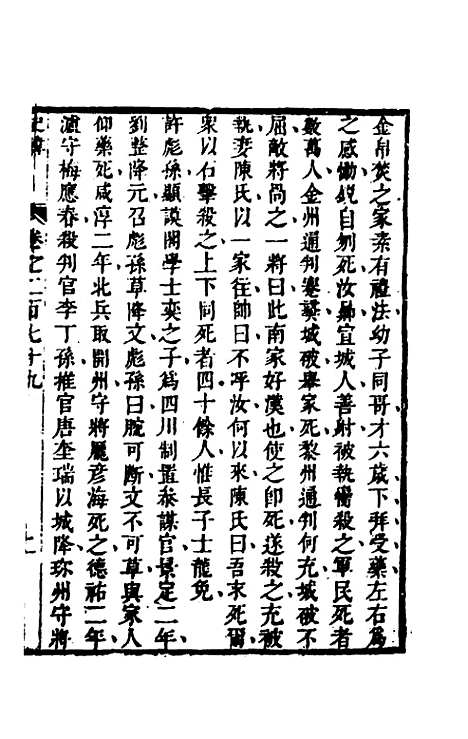 金帛焚之家素有禮法幼子同哥才六歲下拜受藥左右爲
之感慟銳自刎死汝鼒宜城人善射被執臠殺之軍民死者
數萬人金州通判蹇彝城破舉家死黎州通判何充城破不
屈敵將咼之一將曰此南家好漢也使之即死遂殺之充被
執妻陳氏以一家往帥曰不呼汝何以來陳氏曰吾求死爾
衆以石擊殺之上下同死者四十餘人惟長子士龍免
許彪孫顯謨閣學士奕之子爲四川制置叅謀官景定二年
劉整降元召彪孫草降文彪孫曰腕可斷文不可草與家人
仰藥死咸淳二年北兵取開州守將龐彥海死之德祐二年
瀘守梅應春殺判官李丁孫推官唐奎瑞以城降珍州守將
卷之二百七十九